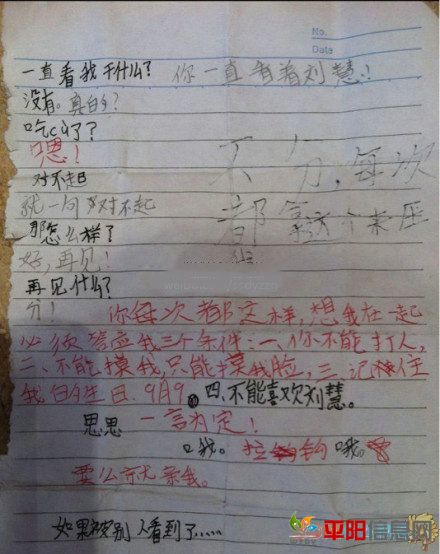 No.
Date
一直看我干什么? 你一直看着刘慧!
没有。真的?
吃cu了?
嗯!
对不起
就一句对不起
那怎么样了?
好,再见!
再见什么?
分!
不分,每次
都拿这个来压
你每次都这样,想我在一起
必须答应我三个条件:一、你不能打人,
二、不能摸我,只能摸我脸,三、记住
我的生日.9月9 四、不能喜欢刘慧。
思思 一言为定!
口我。拉钩 哦。
要么就亲我。
如果被别人看到了......
平阳信息网